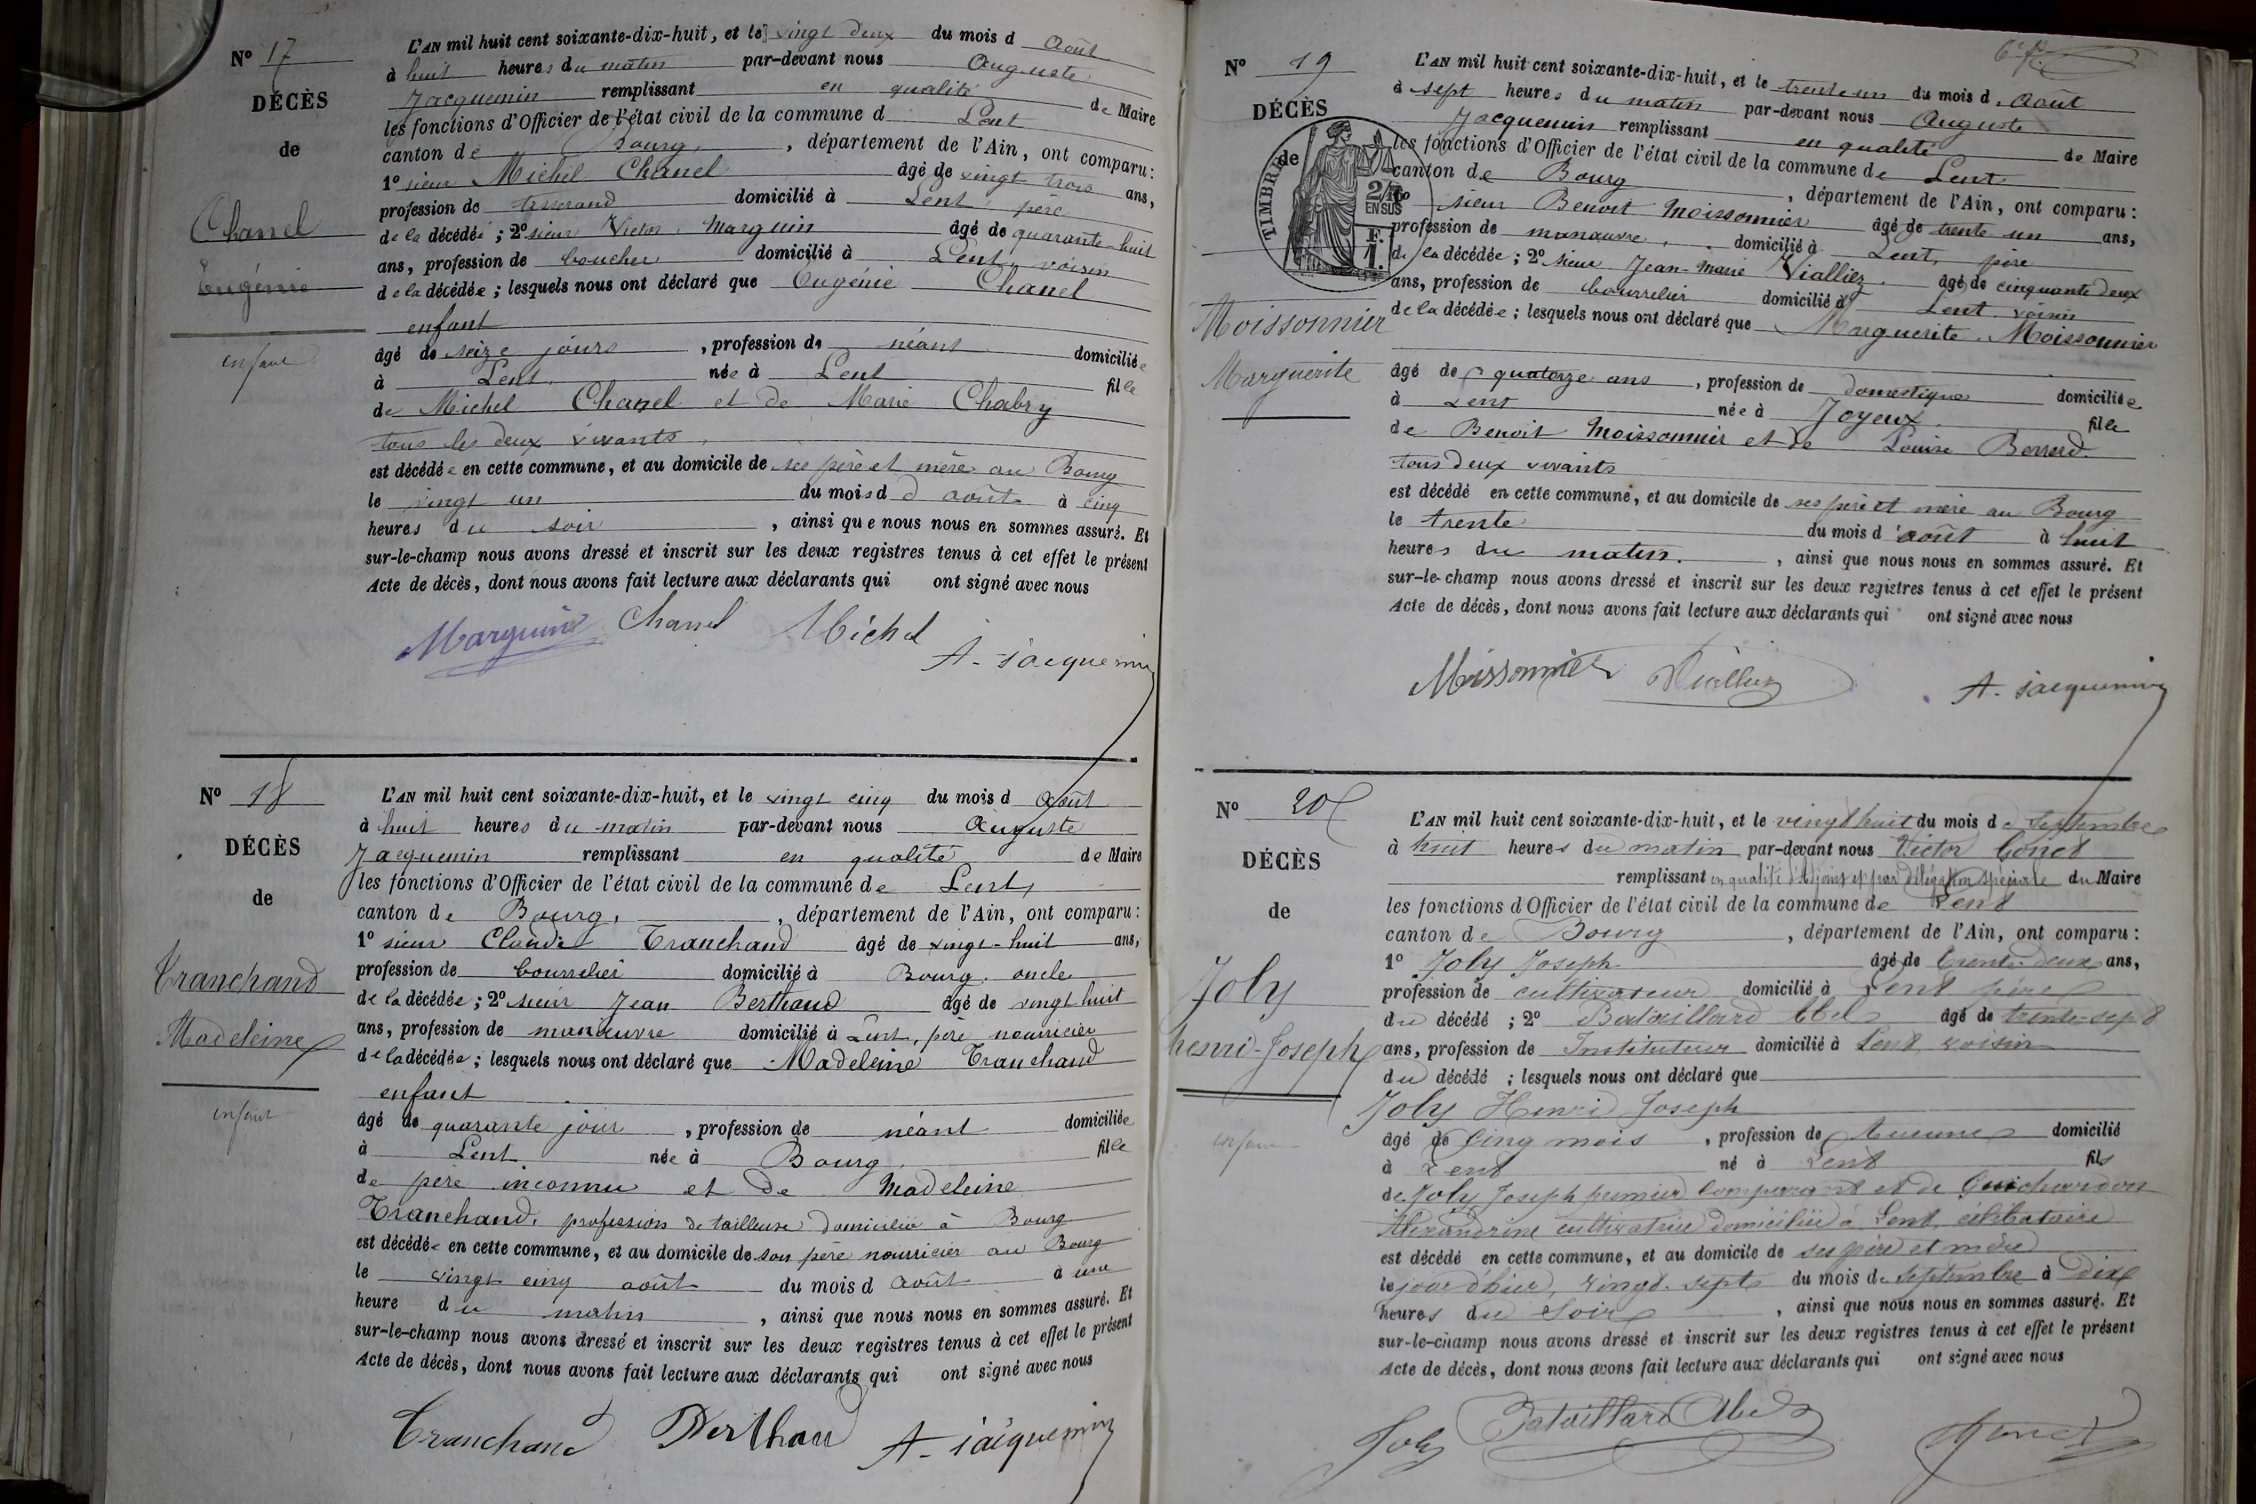 N° 17
DÉCÈS
de
Chanel
Eugénie
enfant
L'AN mil huit cent soixante-dix-huit, et le vingt deux du mois d Août
à huit heures du matin par-devant nous Auguste
Jacquemin remplissant en qualité de Maire
les fonctions d'Officier de l'état civil de la commune d Lent
canton de Bourg, département de l'Ain, ont comparu :
1° sieur Michel Chanel âgé de vingt trois ans,
profession de tisserand domicilié à Lent, père
de la décédée ; 2° sieur Victor Marguin âgé de quarante-huit
ans, profession de boucher domicilié à Lent, voisin
de la décédée ; lesquels nous ont déclaré que Eugénie Chanel
enfant
âgé de seize jours, profession de néant domiciliée
à Lent née à Lent fille
de Michel Chanel et de Marie Chabry
tous les deux vivants,
est décédée en cette commune, et au domicile de ses père et mère au Bourg
le vingt un du mois d d'août à cinq
heures du soir, ainsi que nous nous en sommes assuré. Et
sur-le-champ nous avons dressé et inscrit sur les deux registres tenus à cet effet le présent
Acte de décès, dont nous avons fait lecture aux déclarants qui ont signé avec nous
Marguin Chanel Michel A. Jacquemin
N° 18
DÉCÈS
de
Tranchand
Madeleine
enfant
L'AN mil huit cent soixante-dix-huit, et le vingt cinq du mois d Août
à huit heures du matin par-devant nous Auguste
Jacquemin remplissant en qualité de Maire
les fonctions d'Officier de l'état civil de la commune de Lent
canton de Bourg, département de l'Ain, ont comparu :
1° sieur Claude Tranchand âgé de vingt-huit ans,
profession de bourrelier domicilié à Bourg, oncle
de la décédée ; 2° sieur Jean Berthaud âgé de vingt huit
ans, profession de manœuvre domicilié à Lent, père nourricier
de la décédée ; lesquels nous ont déclaré que Madeleine Tranchand
enfant
âgé de quarante jour, profession de néant domiciliée
à Lent née à Bourg, fille
de père inconnu et de Madeleine
Tranchand, profession de tailleuse domiciliée à Bourg
est décédée en cette commune, et au domicile de son père nourricier au Bourg
le vingt cinq août du mois d août à une
heure du matin, ainsi que nous nous en sommes assuré. Et
sur-le-champ nous avons dressé et inscrit sur les deux registres tenus à cet effet le présent
Acte de décès, dont nous avons fait lecture aux déclarants qui ont signé avec nous
Tranchand Berthau A. Jacquemin
N° 19
DÉCÈS
de
TIMBRE
2/10
EN SUS
F.
1.
Moissonnier
Marguerite
L'AN mil huit cent soixante-dix-huit, et le trente un du mois d. Août
à sept heures du matin par-devant nous Auguste
Jacquemin remplissant en qualité de Maire
les fonctions d'Officier de l'état civil de la commune de Lent
canton de Bourg, département de l'Ain, ont comparu :
1° sieur Benoit Moissonnier âgé de trente un ans,
profession de manœuvre, domicilié à Lent, père
de la décédée ; 2° sieur Jean-Marie Vialliez âgé de cinquante deux
ans, profession de bourrelier domicilié à Lent voisin
de la décédée ; lesquels nous ont déclaré que Marguerite Moissonnier
âgé de quatorze ans, profession de domestique domiciliée
à Lent née à Joyeux fille
de Benoit Moissonnier et de Louise Berrerd
tous deux vivants
est décédé en cette commune, et au domicile de ses père et mère au Bourg
le trente du mois d'août à huit
heures du matin, ainsi que nous nous en sommes assuré. Et
sur-le-champ nous avons dressé et inscrit sur les deux registres tenus à cet effet le présent
Acte de décès, dont nous avons fait lecture aux déclarants qui ont signé avec nous
Moissonnier Vialliez A. Jacquemin
N° 20
DÉCÈS
de
Joly
henri-Joseph
enfant
L'AN mil huit cent soixante-dix-huit, et le vingt huit du mois de Septembre
à huit heures du matin par-devant nous Victor Gonet
remplissant en qualité d'Adjoint et par délégation spéciale du Maire
les fonctions d'Officier de l'état civil de la commune de Lent
canton de Bourg, département de l'Ain, ont comparu :
1° Joly Joseph âgé de trente-deux ans,
profession de cultivateur domicilié à Lent père
du décédé ; 2° Bataillard Abel âgé de trente-sept
ans, profession de Instituteur domicilié à Lent, voisin
du décédé ; lesquels nous ont déclaré que
Joly Henri Joseph
âgé de Cinq mois, profession de Aucune domicilié
à Lent né à Lent fils
de Joly Joseph premier comparant et de Guichardon
Alexandrine cultivatrice domiciliée à Lent, célibataire
est décédé en cette commune, et au domicile de ses père et mère
le jour d'hier, vingt-sept du mois de Septembre à Dix
heures du Soir, ainsi que nous nous en sommes assuré. Et
sur-le-champ nous avons dressé et inscrit sur les deux registres tenus à cet effet le présent
Acte de décès, dont nous avons fait lecture aux déclarants qui ont signé avec nous
Joly Bataillard Abel Gonet